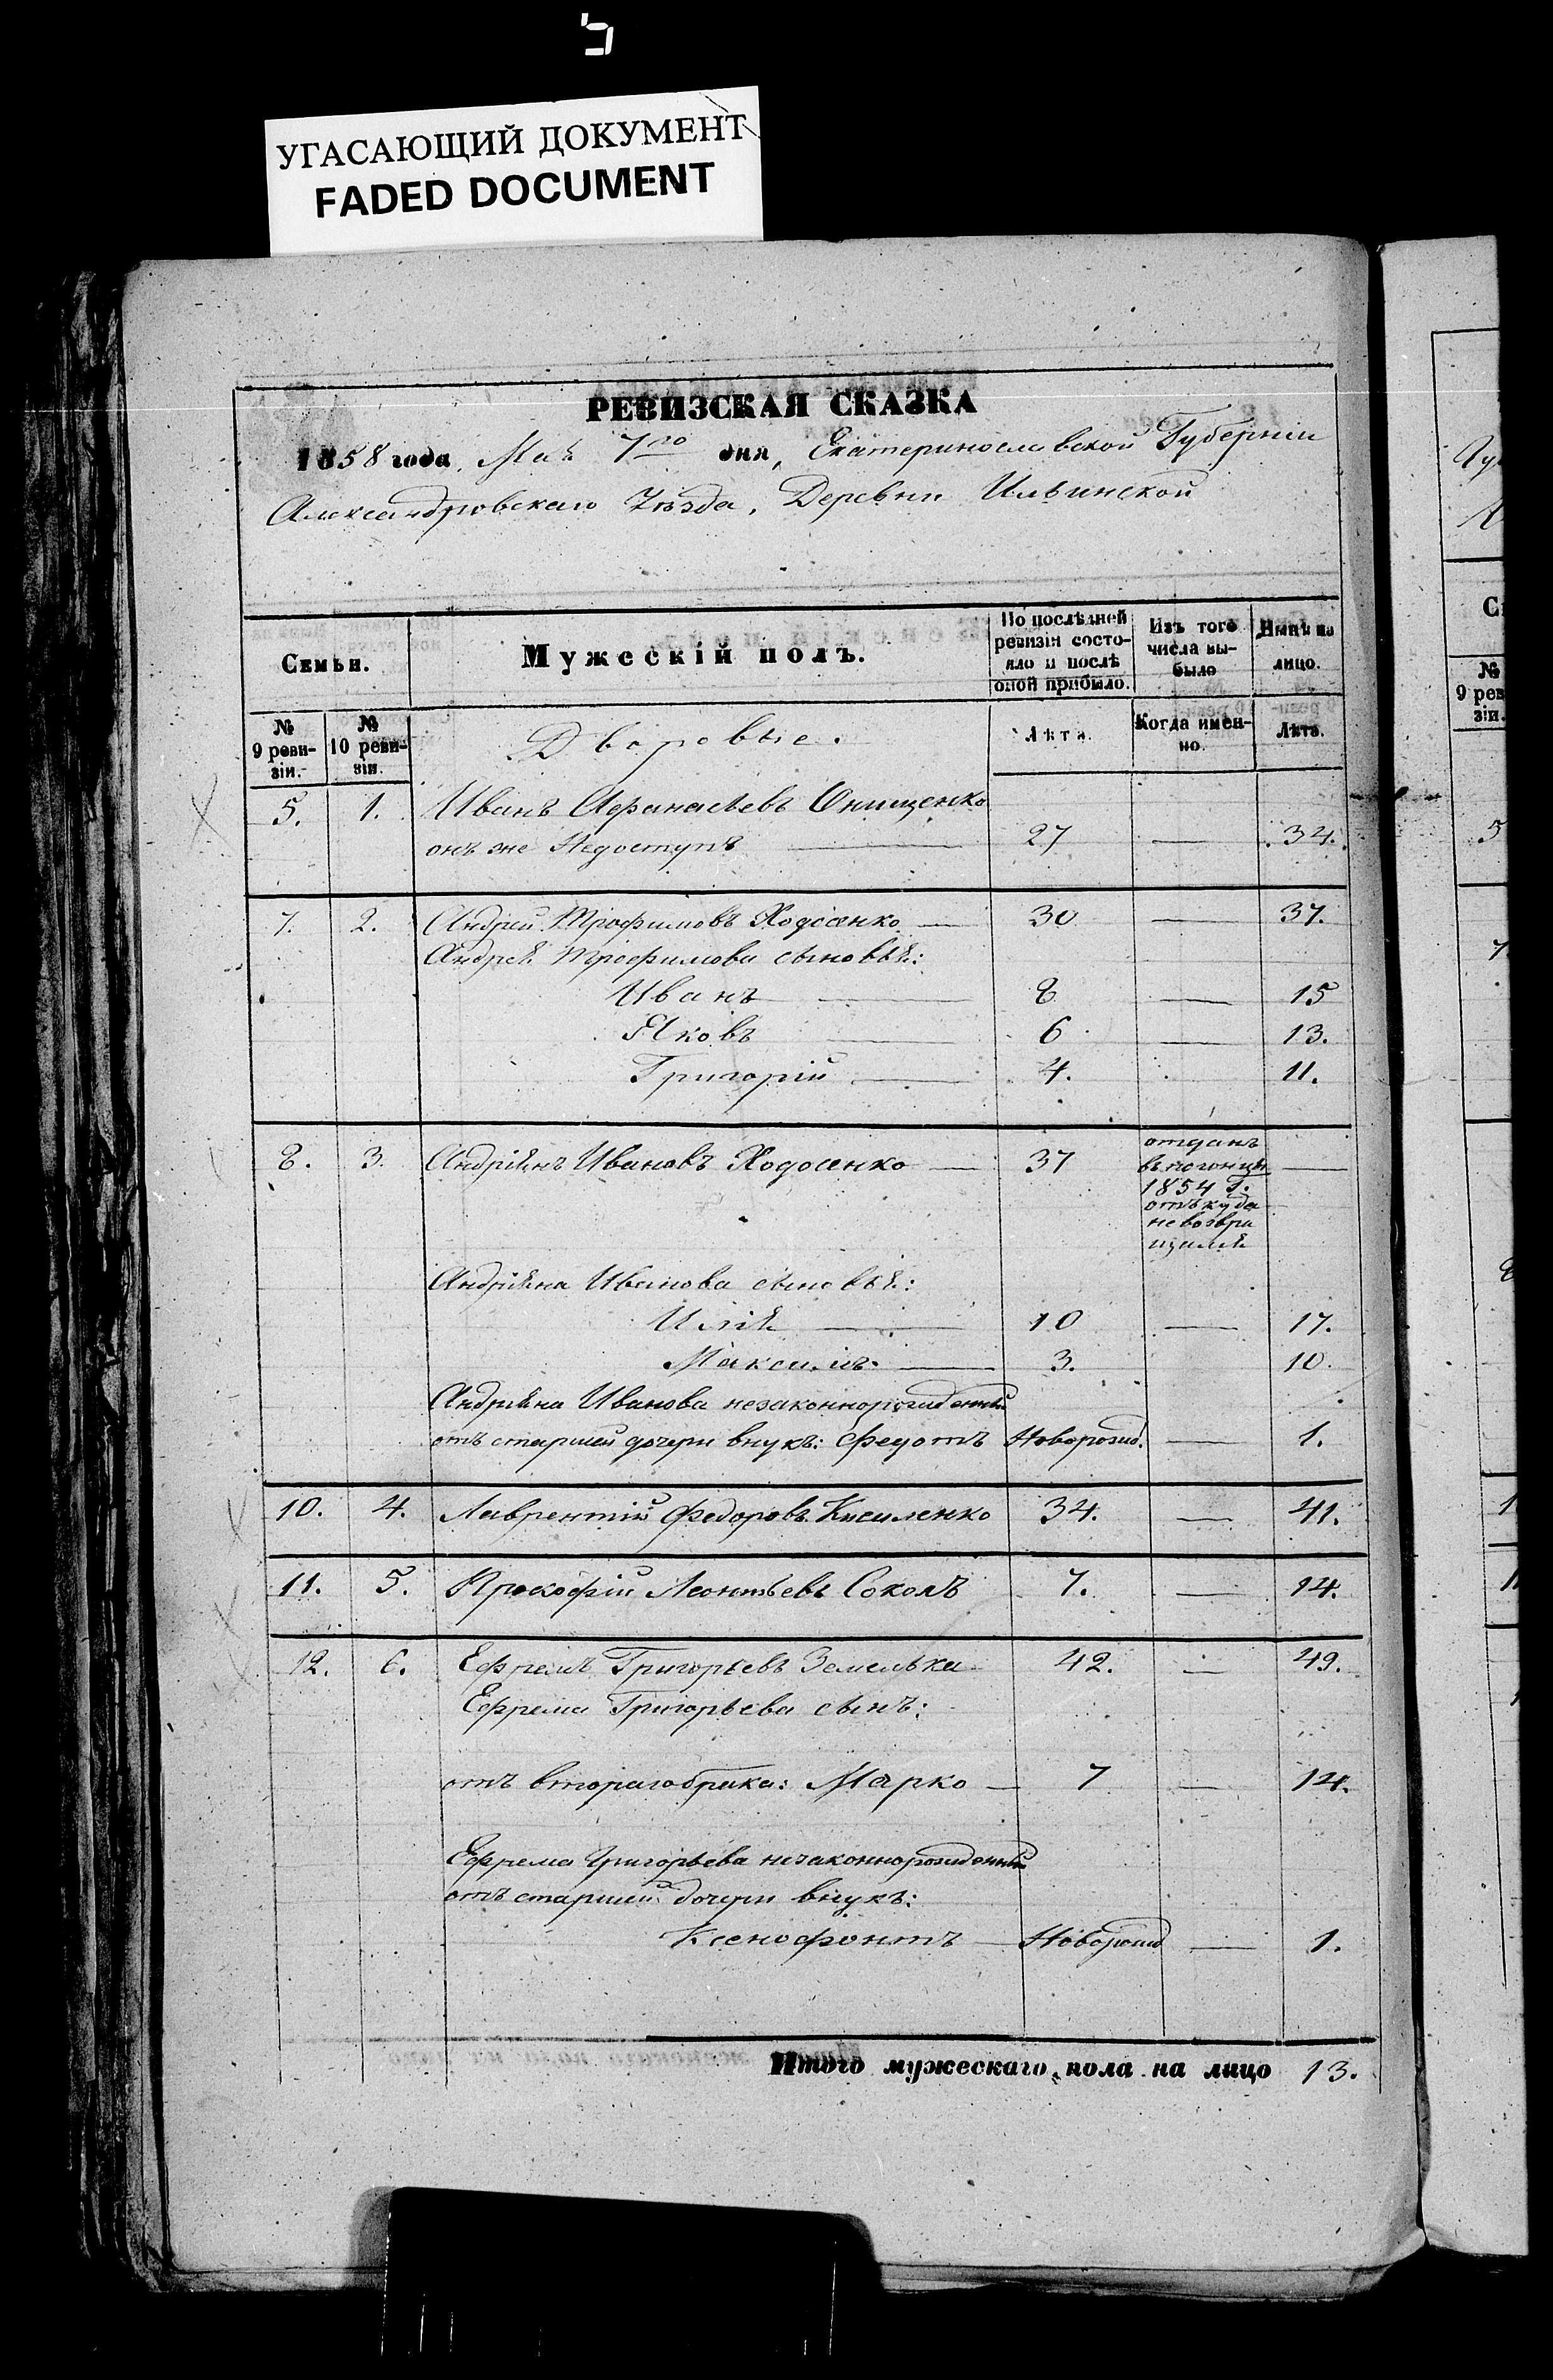 УГАСАЮЩИЙ ДОКУМЕНТ
FADED DOCUMENT
РЕВИЗСКАЯ СКАЗКА
1858 года, Мая 7го дня, Екатеринославской Губерніи
Александровскаго Уѣзда, Деревни Ильинской
Семьи. Мужескій полъ. По послѣдней ревизіи состояло и послѣ оной прибыло. Изъ того числа выбыло Нынѣ на лицо.
№ 9 ревизіи. № 10 ревизіи. Дворовые. Лѣта. Когда именно. Лѣта.
5. 1. Иванъ Афанасьевъ Онищенко
онъ же Недоступъ 27 — 34.
7. 2. Андрей Трофимовъ Ходосенко — 30 — 37.
Андрея Трофимова сыновья:
Иванъ — 8 — 15
Яковъ — 6 — 13.
Григорій — 4. 11.
8. 3. Андріянъ Ивановъ Ходосенко — 37 —
отданъ
въ погонцы
1854 г.
отъкуда
невозвра
щался
Андріяна Иванова сыновья:
Илія — 10 — 17.
Максимъ — 3. 10.
Андріяна Иванова незаконнорожденный
отъ старшей дочери внукъ: Федотъ Новорожд. — 1.
10. 4. Лаврентій Федоровъ Кисиленко 34. — 41.
11. 5. Прокофій Леонтьевъ Соколъ 7. — 14.
12. 6. Ефремъ Григорьевъ Земелька 42. — 49.
Ефрема Григорьева сынъ:
отъ втораго брака: Марко — 7 — 14.
Ефрема Григорьева незаконнорожденный
отъ старшей дочери внукъ:
Ксенофонтъ — Новорожд — 1.
Итого мужескаго пола на лицо 13.